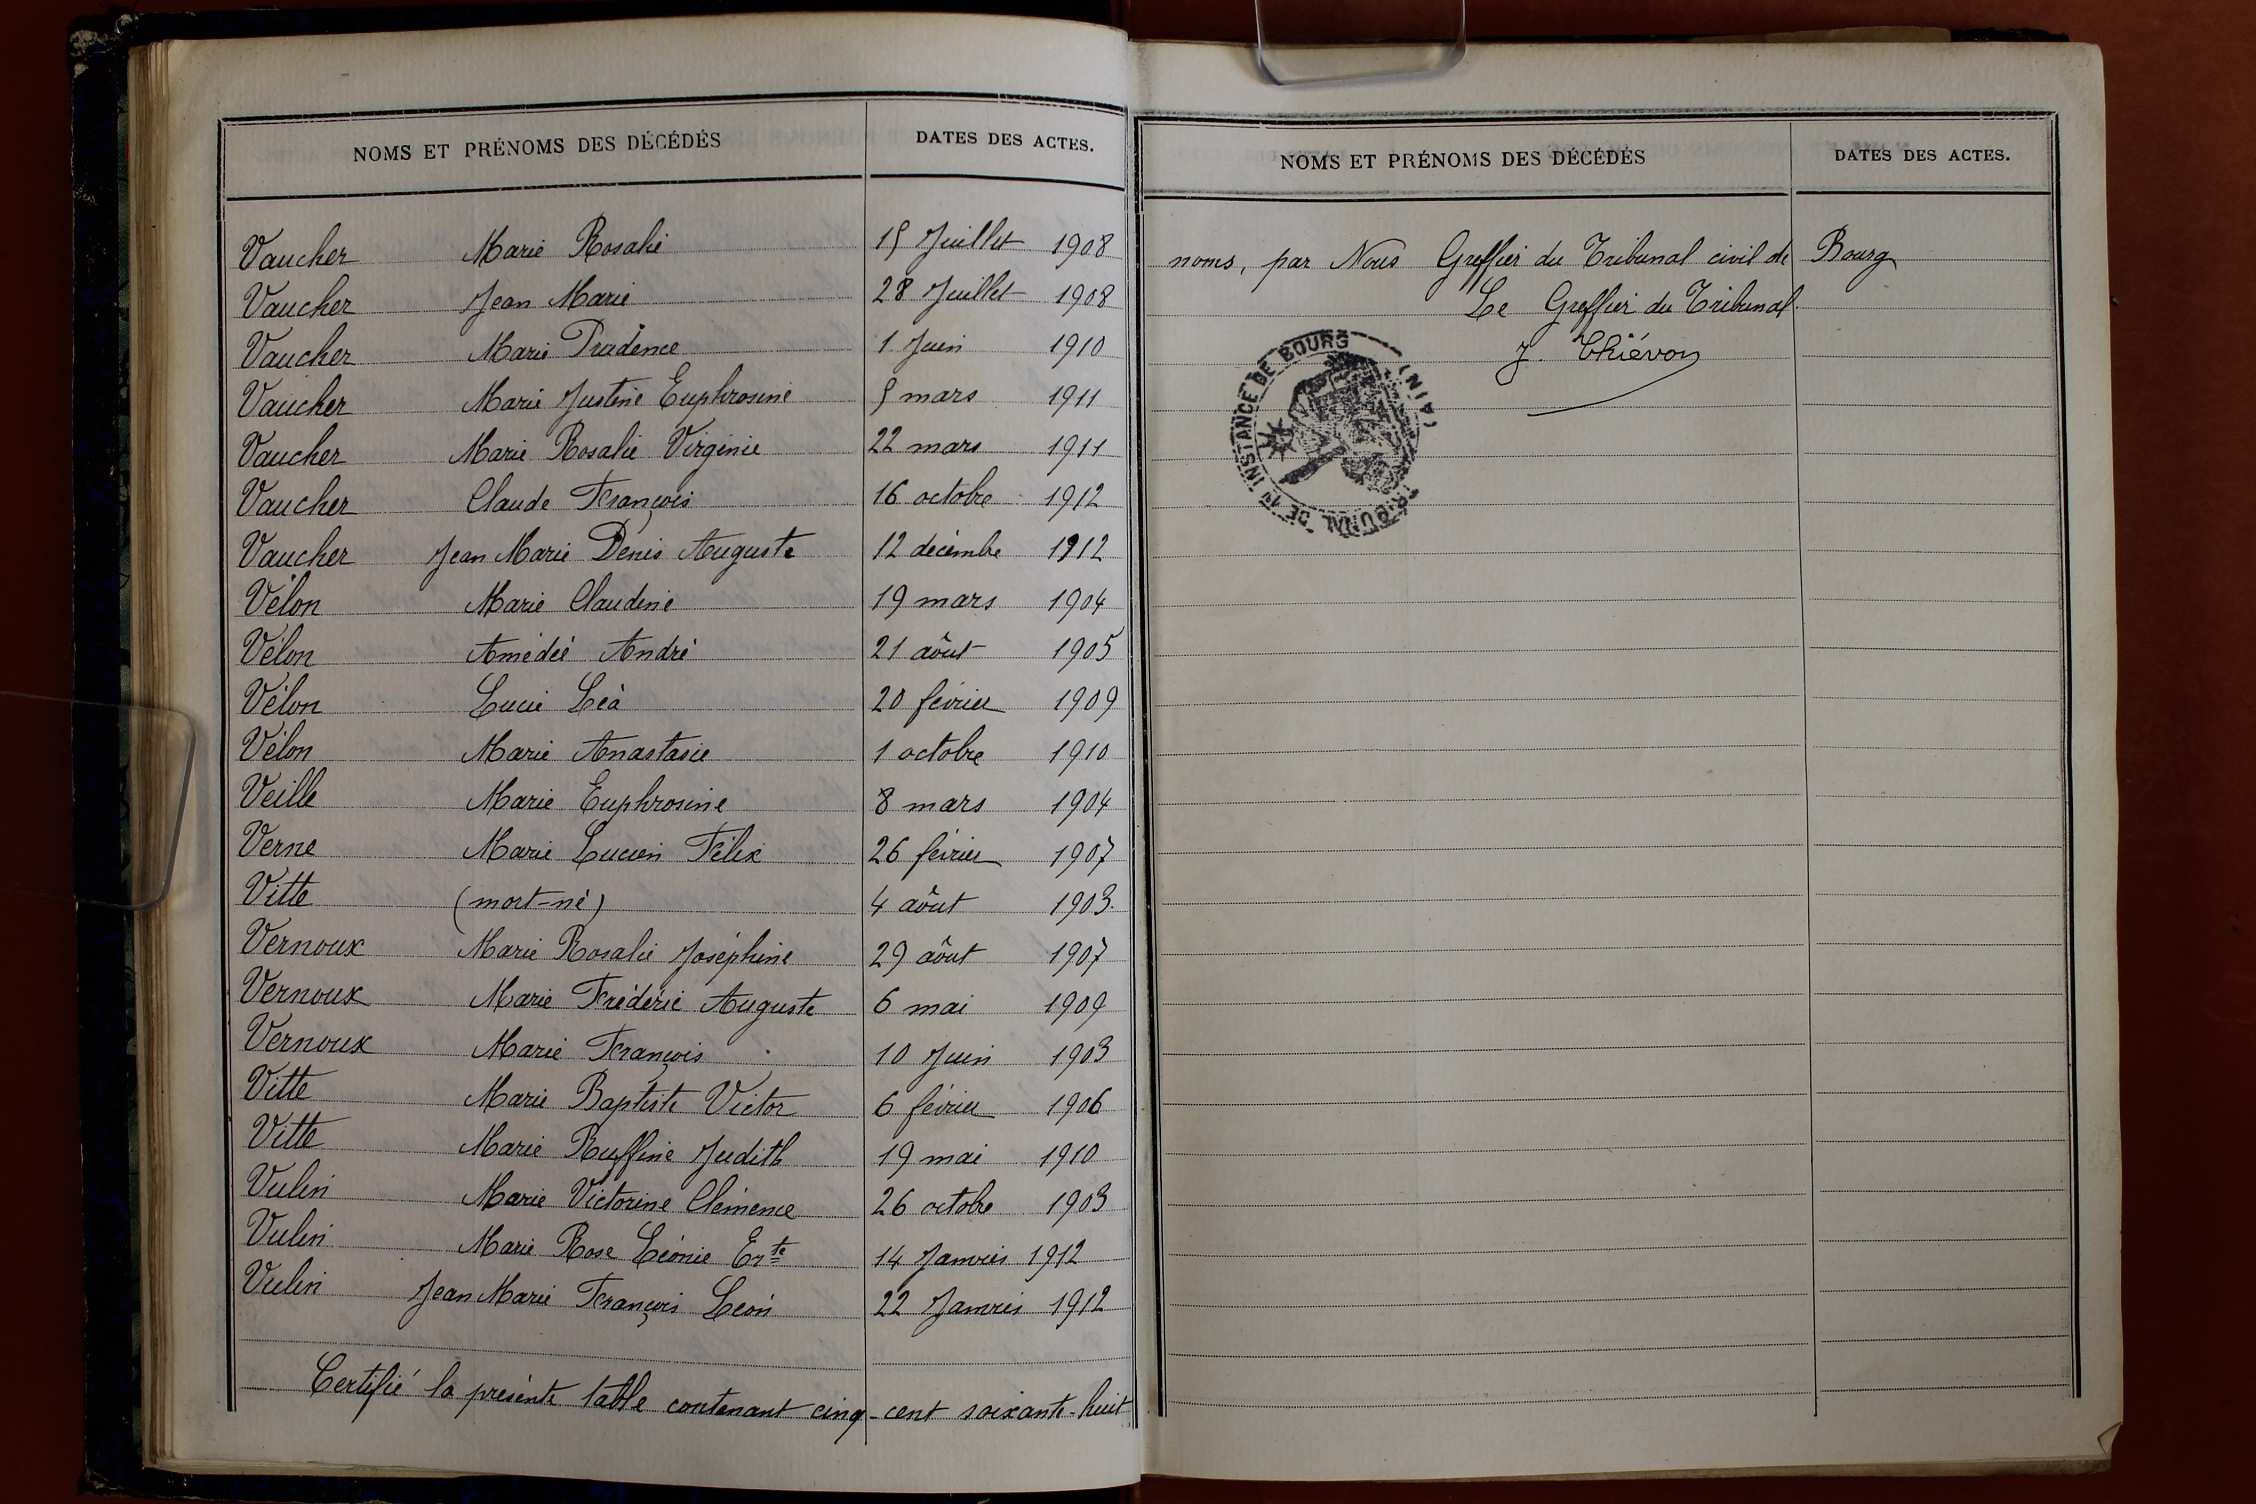 NOMS ET PRÉNOMS DES DÉCÉDÉS DATES DES ACTES.
Vaucher Marie Rosalie 15 Juillet 1908
Vaucher Jean Marie 28 Juillet 1908
Vaucher Marie Prudence 1 Juin 1910
Vaucher Marie Justine Euphrosine 5 mars 1911
Vaucher Marie Rosalie Virginie 22 mars 1911
Vaucher Claude François 16 octobre 1912
Vaucher Jean Marie Denis Auguste 12 décembre 1912
Vélon Marie Claudine 19 mars 1904
Vélon Amédée André 21 août 1905
Vélon Lucie Léa 20 février 1909
Vélon Marie Anastasie 1 octobre 1910
Veille Marie Euphrosine 8 mars 1904
Verne Marie Lucien Félix 26 février 1907
Vitte (mort-né) 4 août 1903
Vernoux Marie Rosalie Joséphine 29 août 1907
Vernoux Marie Frédéric Auguste 6 mai 1909
Vernoux Marie François 10 Juin 1903
Vitte Marie Baptiste Victor 6 février 1906
Vitte Marie Ruffine Judith 19 mai 1910
Vulin Marie Victorine Clémence 26 octobre 1903
Vulin Marie Rose Léonie Erte 14 Janvier 1912
Vulin Jean Marie François Léon 22 Janvier 1912
Certifié la présente table contenant cinq-cent soixante-huit
NOMS ET PRÉNOMS DES DÉCÉDÉS DATES DES ACTES.
noms, par Nous Greffier du Tribunal civil de Bourg
Le Greffier du Tribunal.
J. Thiévon
TRIBUNAL DE 1re INSTANCE DE BOURG (AIN)